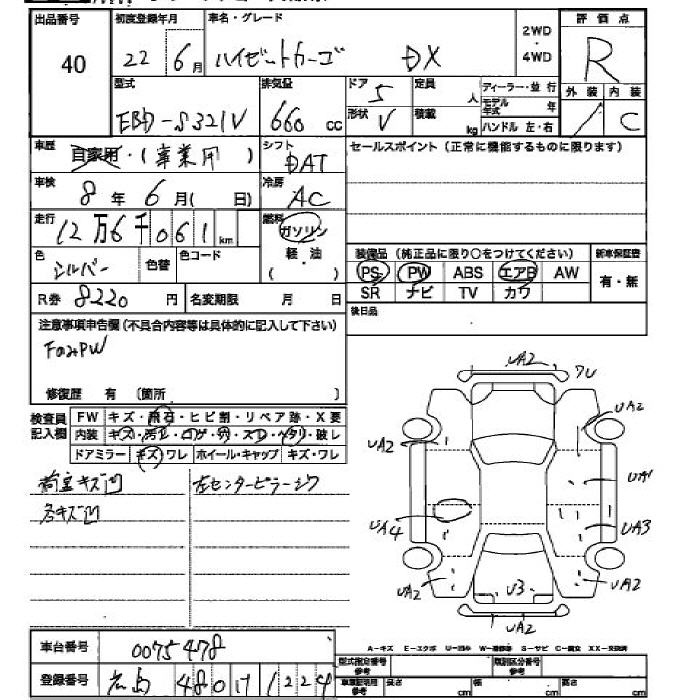 出品番号 初度登録年月 車名・グレード 評価点
40 22 6月 ハイゼットカーゴ DX 2WD・4WD R
型式 排気量 ドア 定員 ディーラー・並行 外装 内装
EBD-S321V 660 cc 5 人 モデル年式 年
形状 V 積載 kg ハンドル 左・右 / C
車歴 自家用・(事業用) シフト DAT セールスポイント(正常に機能するものに限ります)
車検 8年6月( 日) 冷房 AC
走行 12万6千061km 燃料 ガソリン
軽油
( )
色 シルバー 色替 色コード
装備品(純正品に限り○をつけてください) 新車保証書
PS PW ABS エアB AW 有・無
SR ナビ TV カワ
R券 8220円 名変期限 月 日
後日品
注意事項申告欄(不具合内容等は具体的に記入して下さい)
FのみPW
修復歴 有 〔箇所 〕
検査員記入欄 FW キズ・飛石・ヒビ割・リペア跡・X要
内装 キズ・汚れ・コゲ・穴・スレ・ヘタリ・破レ
ドアミラー キズ・ワレ ホイール・キャップ キズ・ワレ
荷室キズ凹 左センターピラーシワ
各キズ凹
UA2
フU
UA2
UA2
UA1
UA4
UA3
UA2
U3
UA2
UA2
A-キズ E-エクボ U-凹み W-補修跡 S-サビ C-腐食 XX-交換済
車台番号 0075478
型式指定番号 参考 類別区分番号 参考
登録番号 広島 480 け 1224
車庫証明用 参考 長さ cm 幅 cm 高さ cm